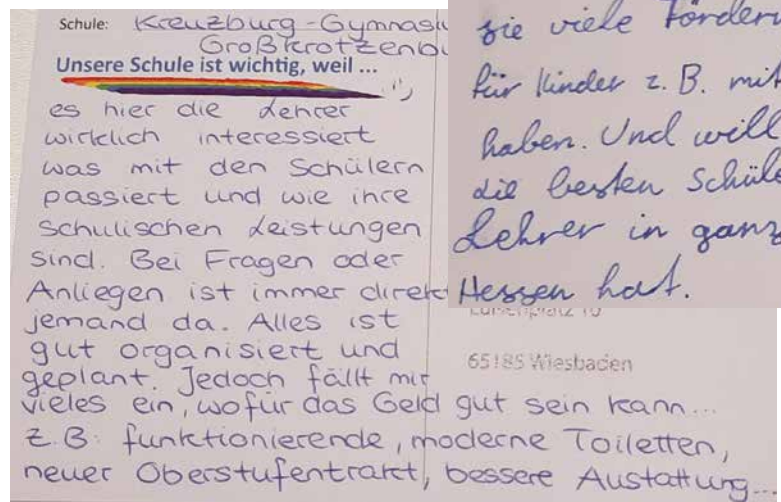 Schule: Kreuzburg-Gymnasi
Großkrotzenbu
Unsere Schule ist wichtig, weil ...
es hier die Lehrer
wirklich interessiert
was mit den Schülern
passiert und wie ihre
schulischen Leistungen
sind. Bei Fragen oder
Anliegen ist immer direkt
jemand da. Alles ist
gut organisiert und
geplant. Jedoch fällt mir
vieles ein, wofür das Geld gut sein kann...
z.B. funktionierende, moderne Toiletten,
neuer Oberstufentrakt, bessere Austattung...
sie viele Förder
für Kinder z. B. mit
haben. Und will
die besten Schüle
Lehrer in ganz
Hessen hat.
65185 Wiesbaden